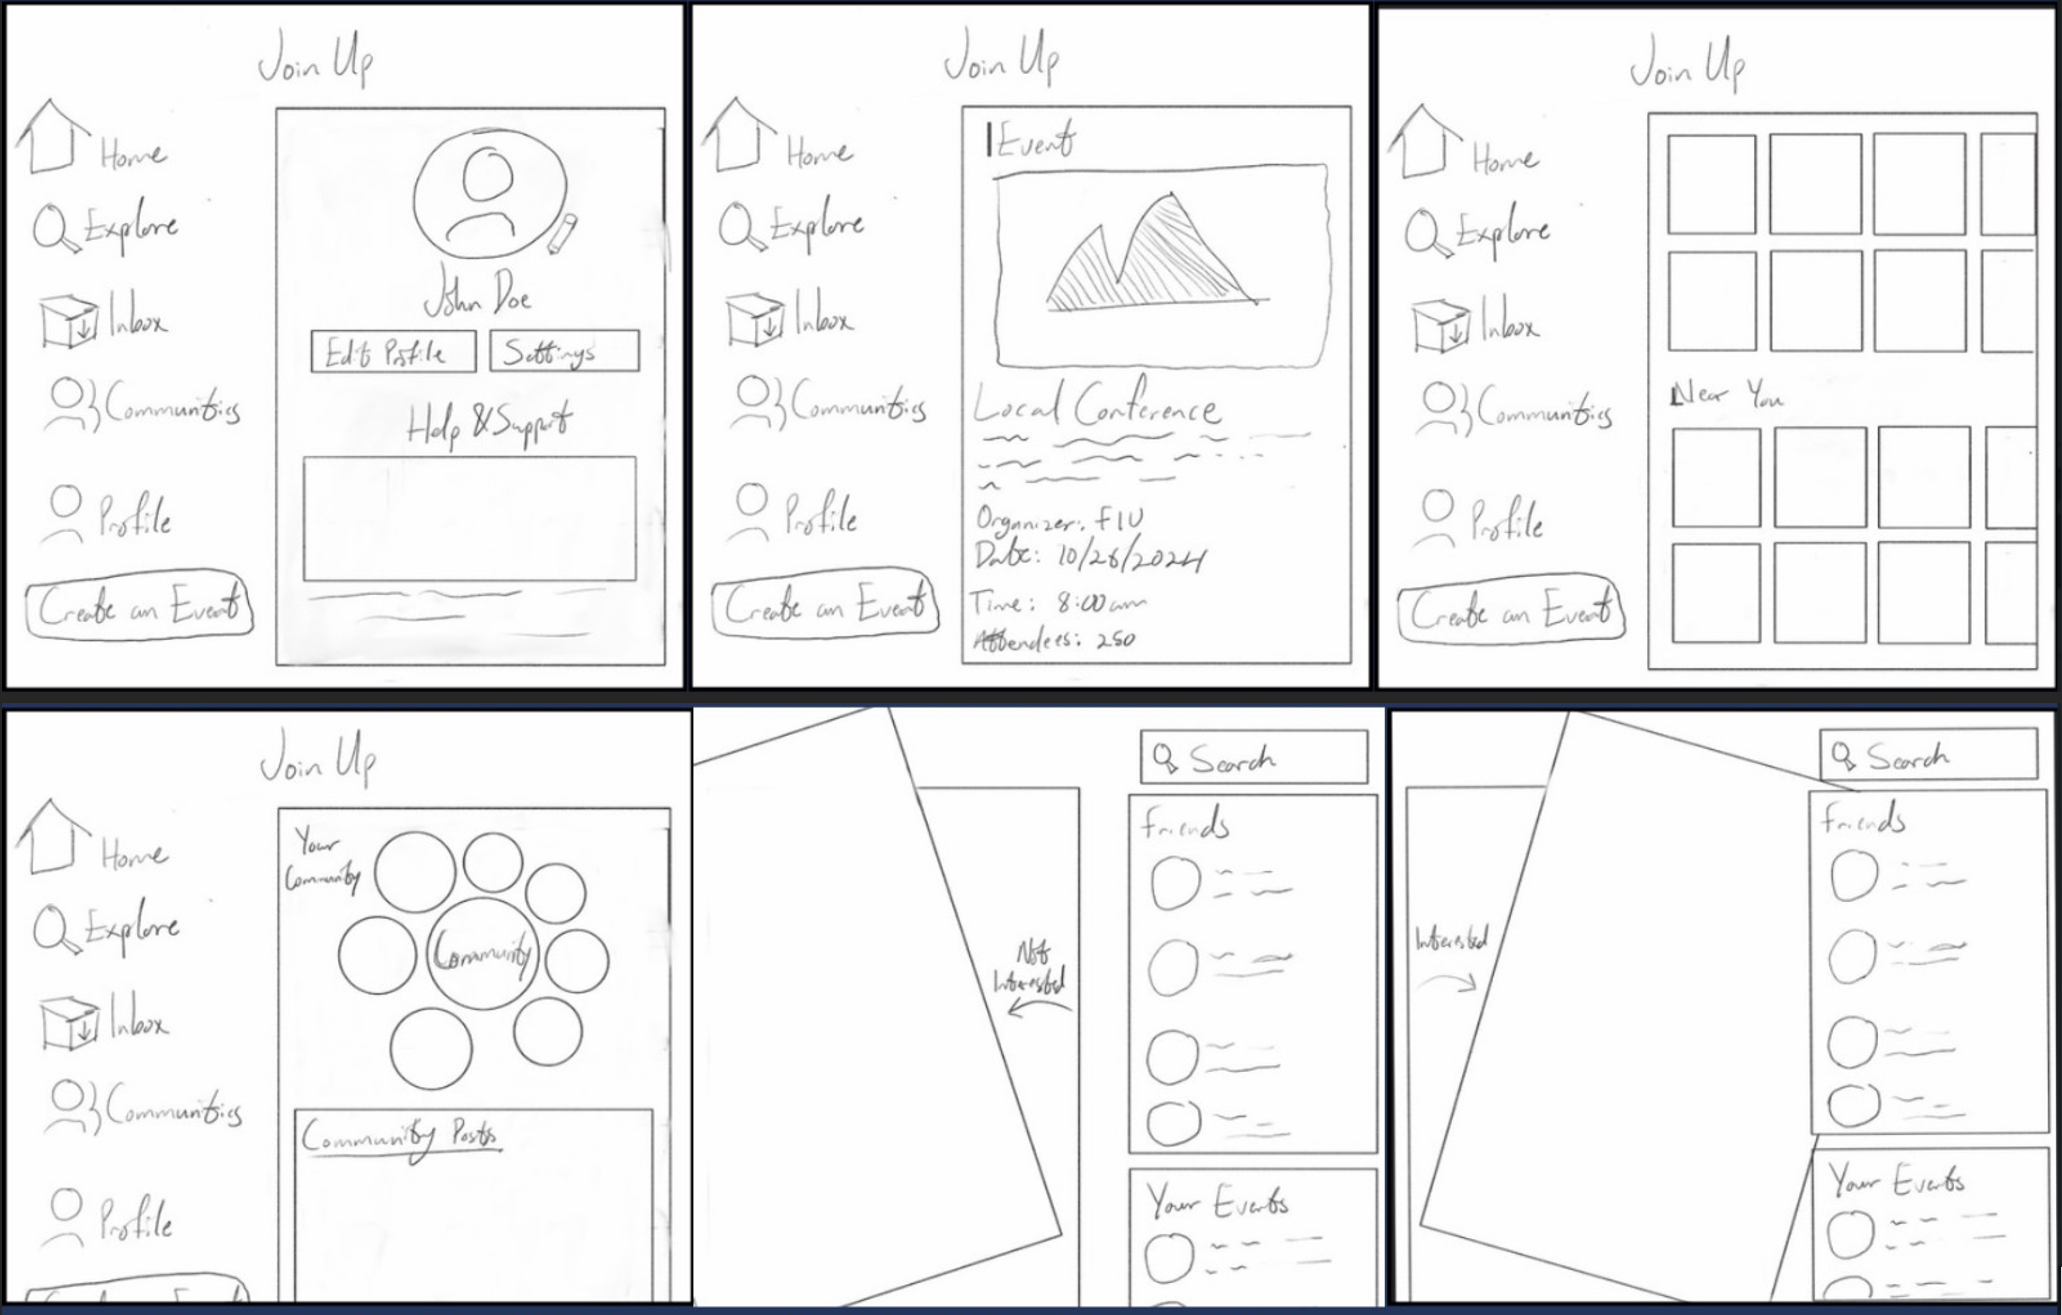 Join Up
Home
Explore
Inbox
Communities
Profile
Create an Event
John Doe
Edit Profile
Settings
Help & Support
Join Up
Home
Explore
Inbox
Communities
Profile
Create an Event
Event
Local Conference
Organizer: FIU
Date: 10/26/2024
Time: 8:00 am
Attendees: 250
Join Up
Home
Explore
Inbox
Communities
Profile
Create an Event
Near You
Join Up
Home
Explore
Inbox
Communities
Profile
Create an Event
Your
Community
Community
Community Posts
Not
Interested
Search
Friends
Your Events
Interested
Search
Friends
Your Events